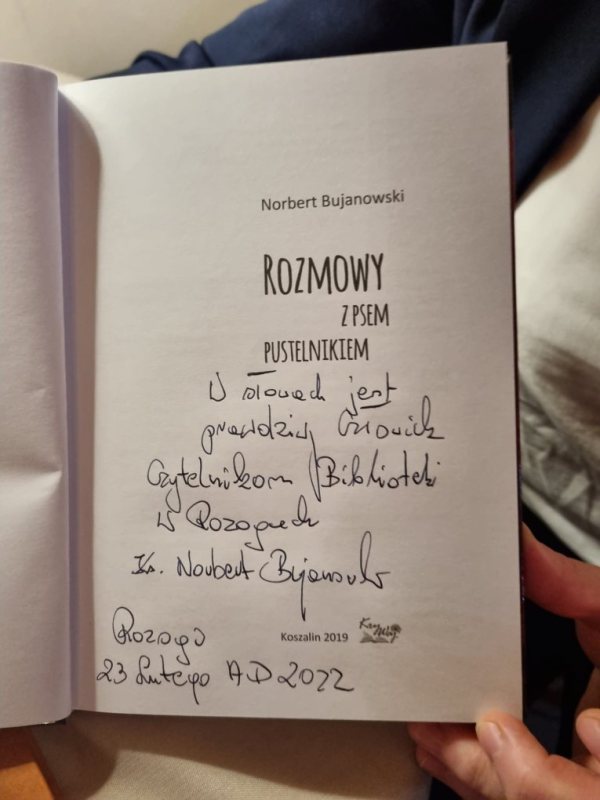 Norbert Bujanowski
ROZMOWY
Z PSEM
PUSTELNIKIEM
W słowach jest
prawdziwy Człowiek
Czytelnikom Biblioteki
w Rozogach
Ks. Norbert Bujanowski
Koszalin 2019
Rozogi
23 Lutego A D 2022